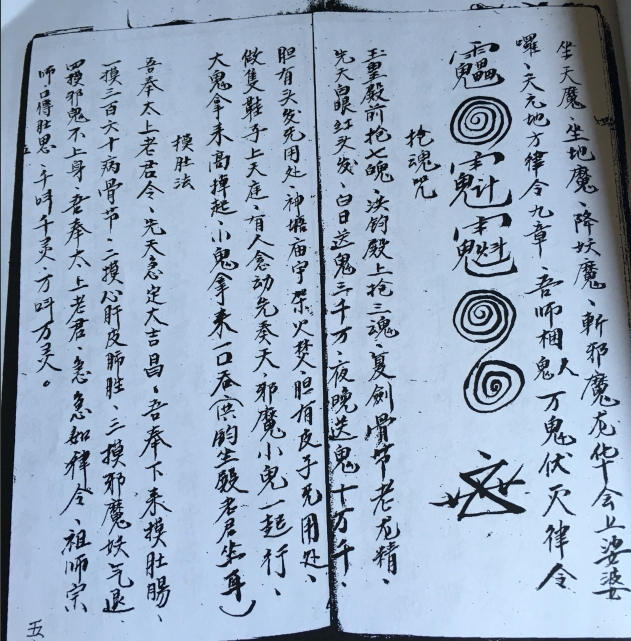 坐天魔、坐地魔、降妖魔、斬邪魔龙华会上娑婆
囉、天元地方律令九章、吾师梱鬼人万鬼伏灭律令
抢魂咒
玉皇殿前抢七魄、洪钧殿上抢三魂、复剑骨节老龙精、
先天白眼红头发、白日送鬼三千万、夜晚送鬼十万千、
胆有头发无用处、神塘庙宇架火焚、胆有皮子无用处、
做隻鞋子上天庭、有人念动先奏天、邪魔小鬼一起行、
大鬼拿来高掉起、小鬼拿来一口吞(洪钧坐殿老君坐耳)
摸肚法
吾奉太上老君令、先天急定大吉昌、吾奉下来摸肚腸、
一摸三百六十病骨节、二摸心肝皮肺胜、三摸邪魔妖气退、
四摸邪鬼不上身、吾奉太上老君、急急如律令、祖师宗
师口傳肚思、千叫千灵、万叫万灵。
五